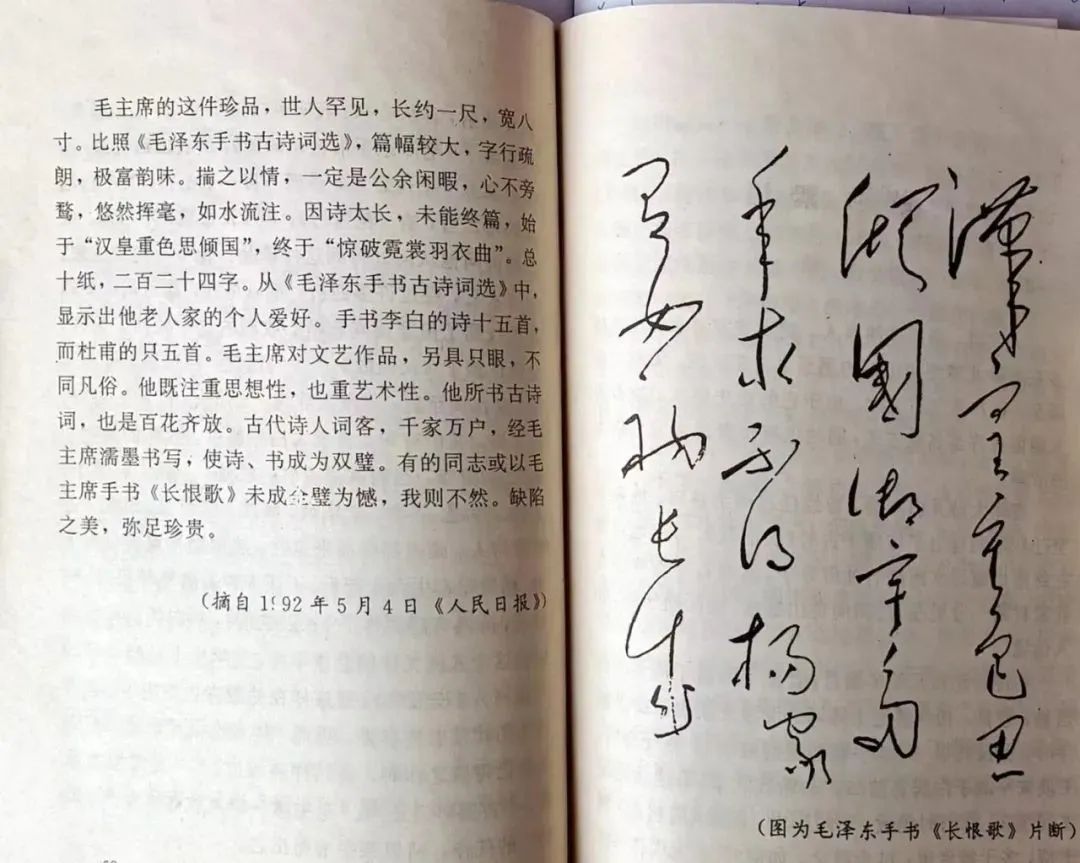 毛主席的这件珍品，世人罕见，长约一尺，宽八
寸。比照《毛泽东手书古诗词选》，篇幅较大，字行疏
朗，极富韵味。揣之以情，一定是公余闲暇，心不旁
鹜，悠然挥毫，如水流注。因诗太长，未能终篇，始
于“汉皇重色思倾国”，终于“惊破霓裳羽衣曲”。总
十纸，二百二十四字。从《毛泽东手书古诗词选》中，
显示出他老人家的个人爱好。手书李白的诗十五首，
而杜甫的只五首。毛主席对文艺作品，另具只眼，不
同凡俗。他既注重思想性，也重艺术性。他所书古诗
词，也是百花齐放。古代诗人词客，千家万户，经毛
主席濡墨书写，使诗、书成为双璧。有的同志或以毛
主席手书《长恨歌》未成全璧为憾，我则不然。缺陷
之美，弥足珍贵。
（摘自1992年5月4日《人民日报》）
漢皇重色思
傾國御宇多
年求不得楊家
有女初長成
（图为毛泽东手书《长恨歌》片断）